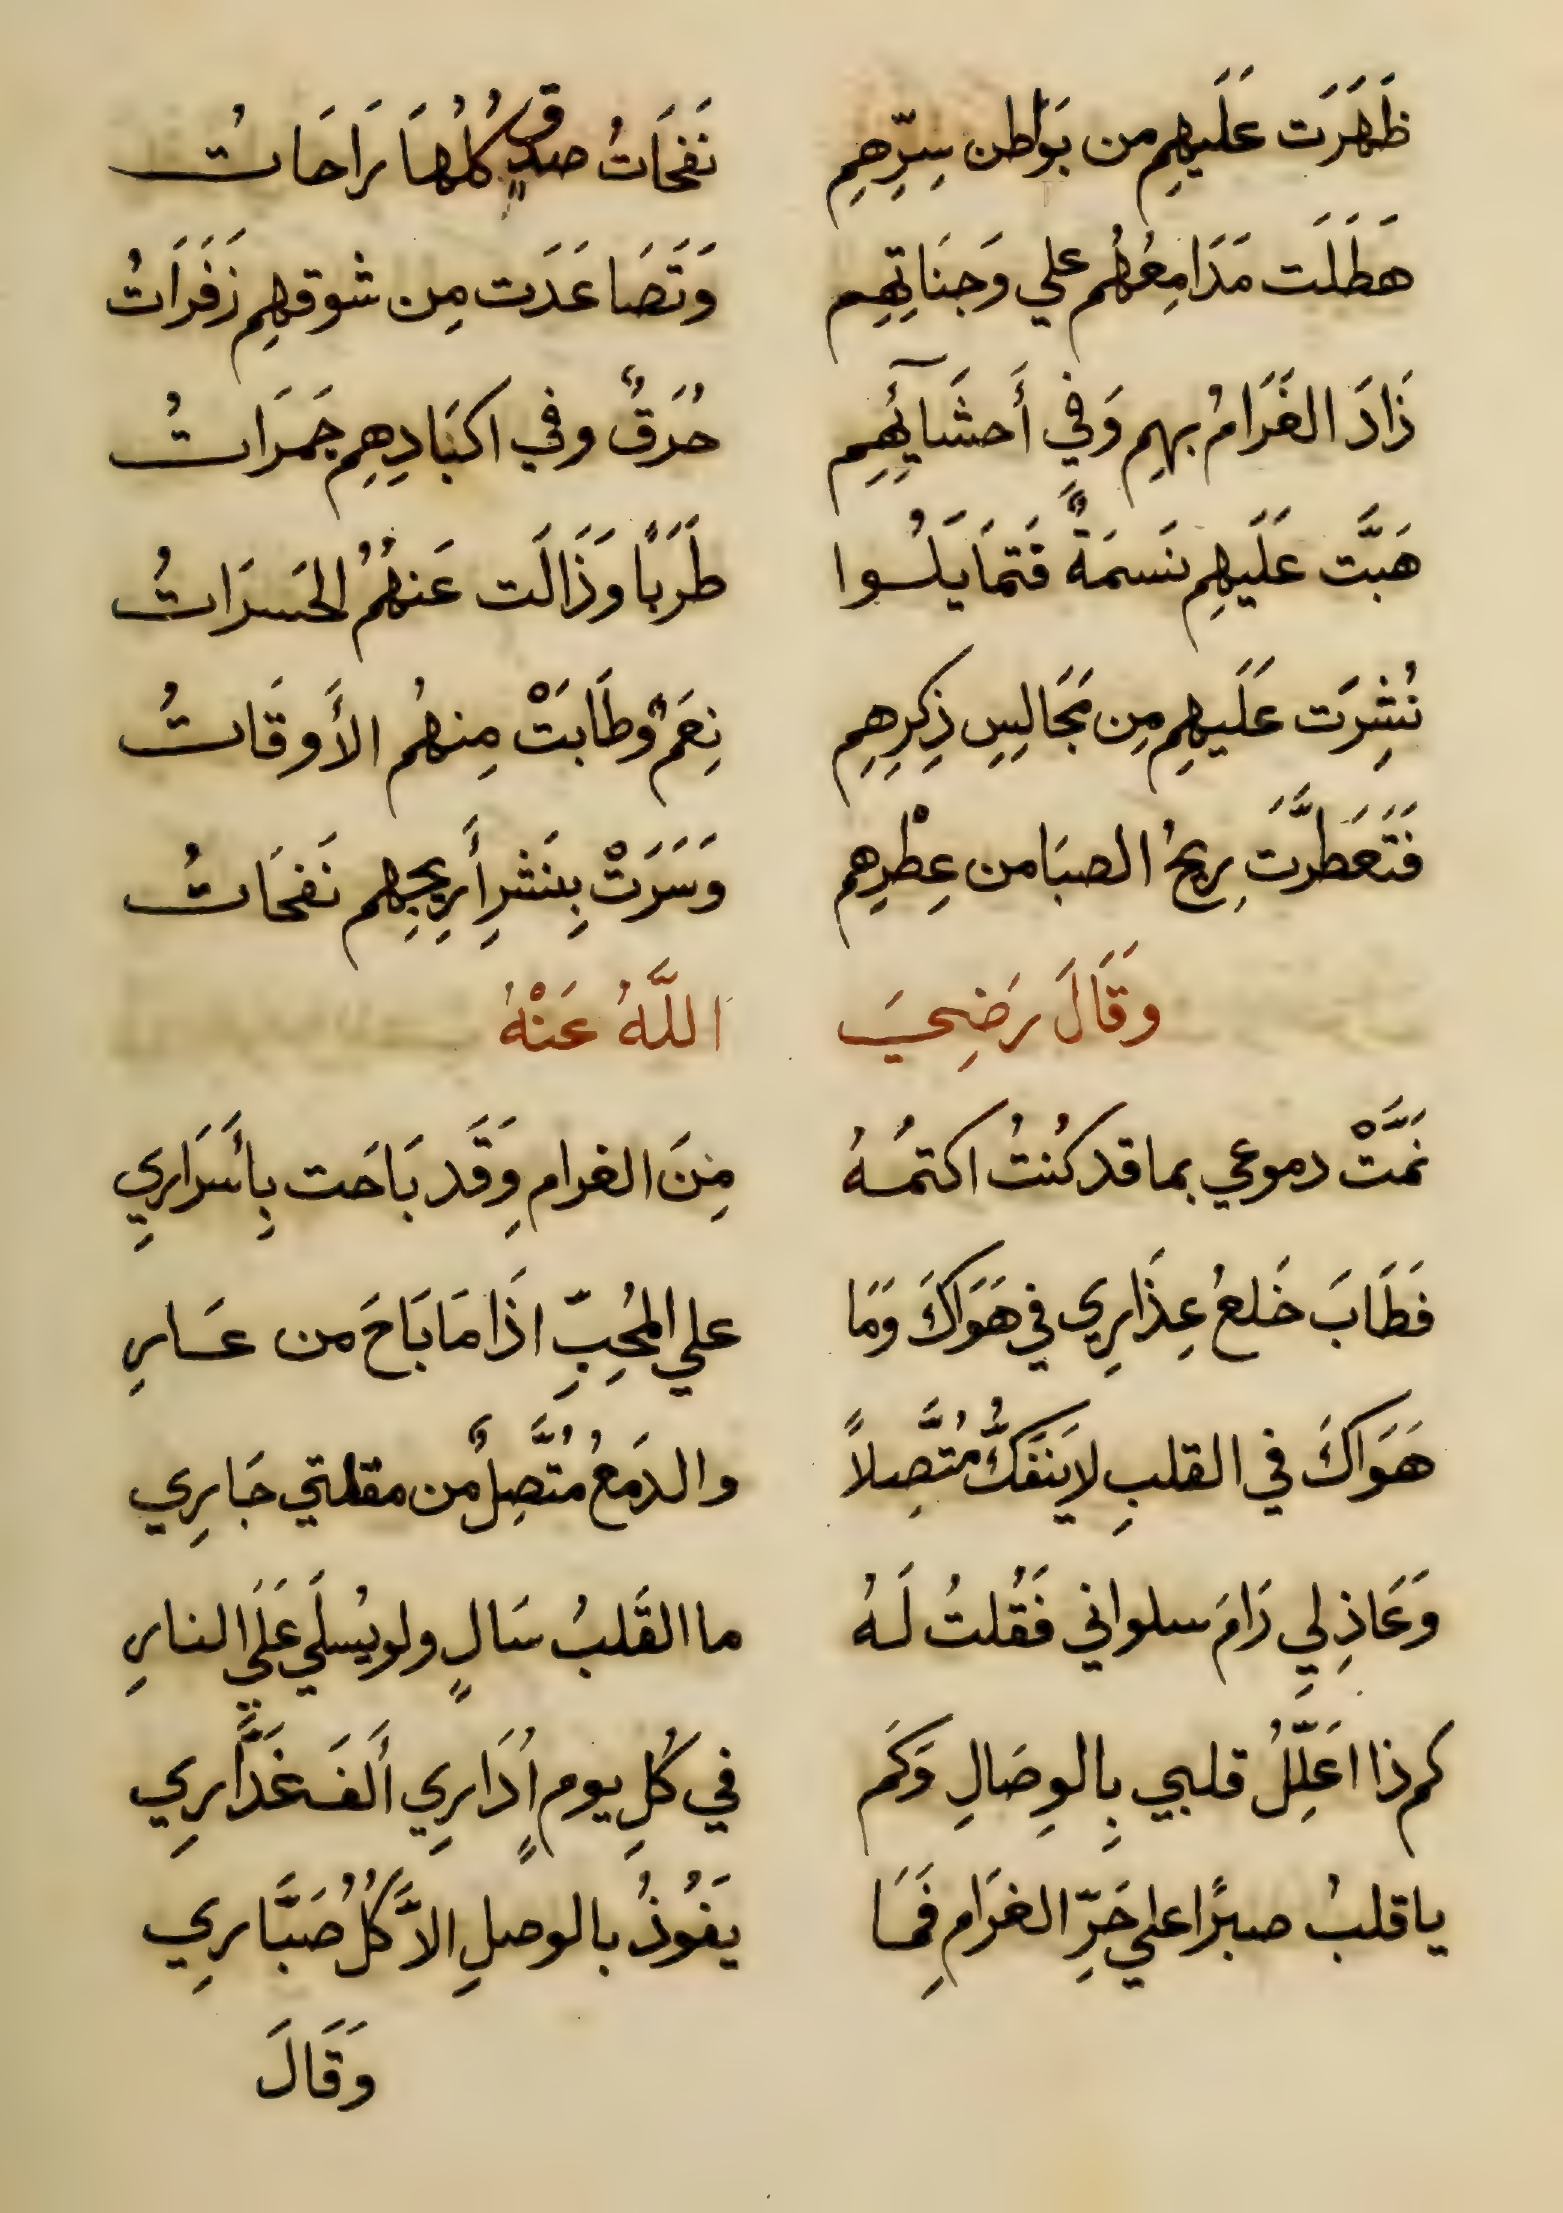 ظَهَرَت عَلَيهِم من بَوَاطن سِرِّهِم نَفحَاتُ صدقٍ كُلُهَا رَاحَاتُ
هَطَلَت مَدَامِعُهُم علي وَجنَاتِهِم وَتَصَاعَدَت مِن شوقهِم زَفَرَاتُ
زَادَ الغَرَامُ بهِم وَفِي أَحشَآئِهِم حُرَقٌ وفي اكبَادِهِم جَمَرَاتُ
هَبَّت عَلَيهِم نَسمَةٌ فَتمَايَلُسوا طَرَبًا وَزَالَت عَنهُمُ الحَسرَاتُ
نُشِرَت عَلَيهِم مِن مَجَالِسِ ذِكرِهِم نِعَمٌ وطَابَتْ مِنهُم الأَوقَاتُ
فَتَعَطَّرَت رِيحُ الصبَا من عِطْرِهِم وَسَرَتْ بِنَشرِ أَرِيجِهِم نَفحَاتُ
وَقَالَ رَضِيَ اللَّهُ عَنْهُ
نَمَّتْ دموعي بما قد كُنتُ اكتمُهُ مِنَ الغرامِ وَقَد بَاحَت بِأَسَرَارِي
فَطَابَ خَلعُ عِذَارِي في هَوَاكَ وَمَا علي المُحِبِّ اذَا مَا بَاحَ من عَارِ
هَوَاكَ في القلبِ لا يَنفَكُّ مُتَّصِلاً والدمَعُ مُتَّصِلٌ من مقلتي جَارِي
وَعَاذِلِي رَامَ سلواني فَقُلتُ لَهُ ما القَلبُ سَالٍ ولو يُسلَي عَلَي النارِ
كم ذا اعَلِّلُ قلبي بِالوِصَالِ وَكَم في كُلِ يومٍ اُدَارِي أَلفَ غَدَّارِي
يا قلبُ صبرًا علي حَرِّ الغرَامِ فَمَا يَفُوذُ بالوصلِ الاَّ كُلُ صَبَّارِي
وَقَالَ